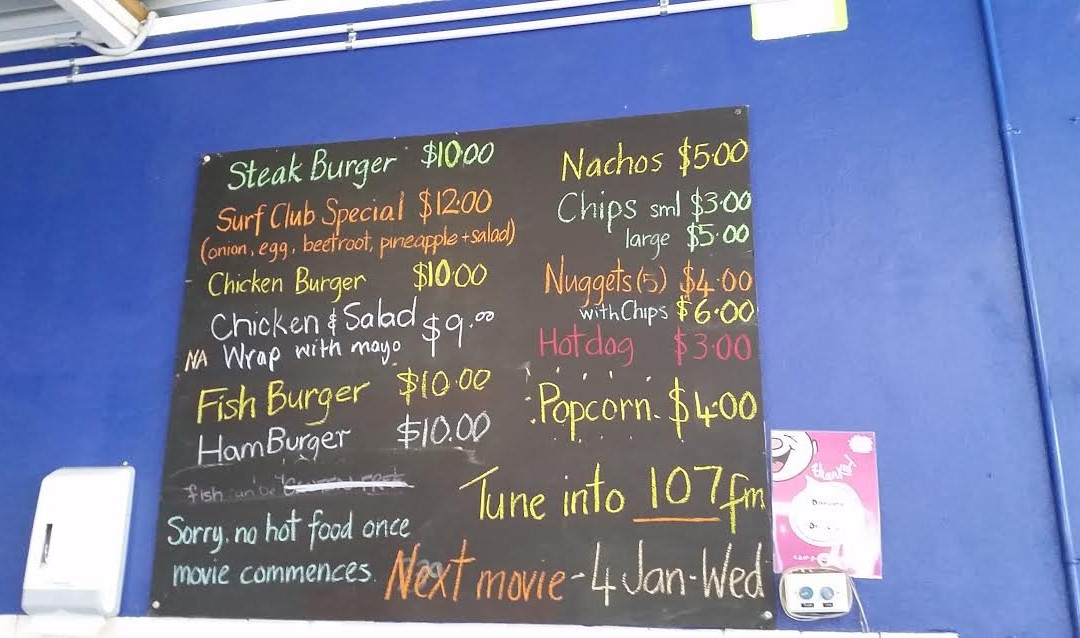 Steak Burger $10.00
Surf Club Special $12.00
(onion, egg, beetroot, pineapple + salad)
Chicken Burger $10.00
Chicken & Salad $9.00
NA Wrap with mayo
Fish Burger $10.00
Ham Burger $10.00
fish can be
Sorry, no hot food once
movie commences.
Nachos $5.00
Chips sml $3.00
large $5.00
Nuggets (5) $4.00
with Chips $6.00
Hotdog $3.00
Popcorn. $4.00
Tune into 107 fm
Next movie - 4 Jan - Wed
thanks!